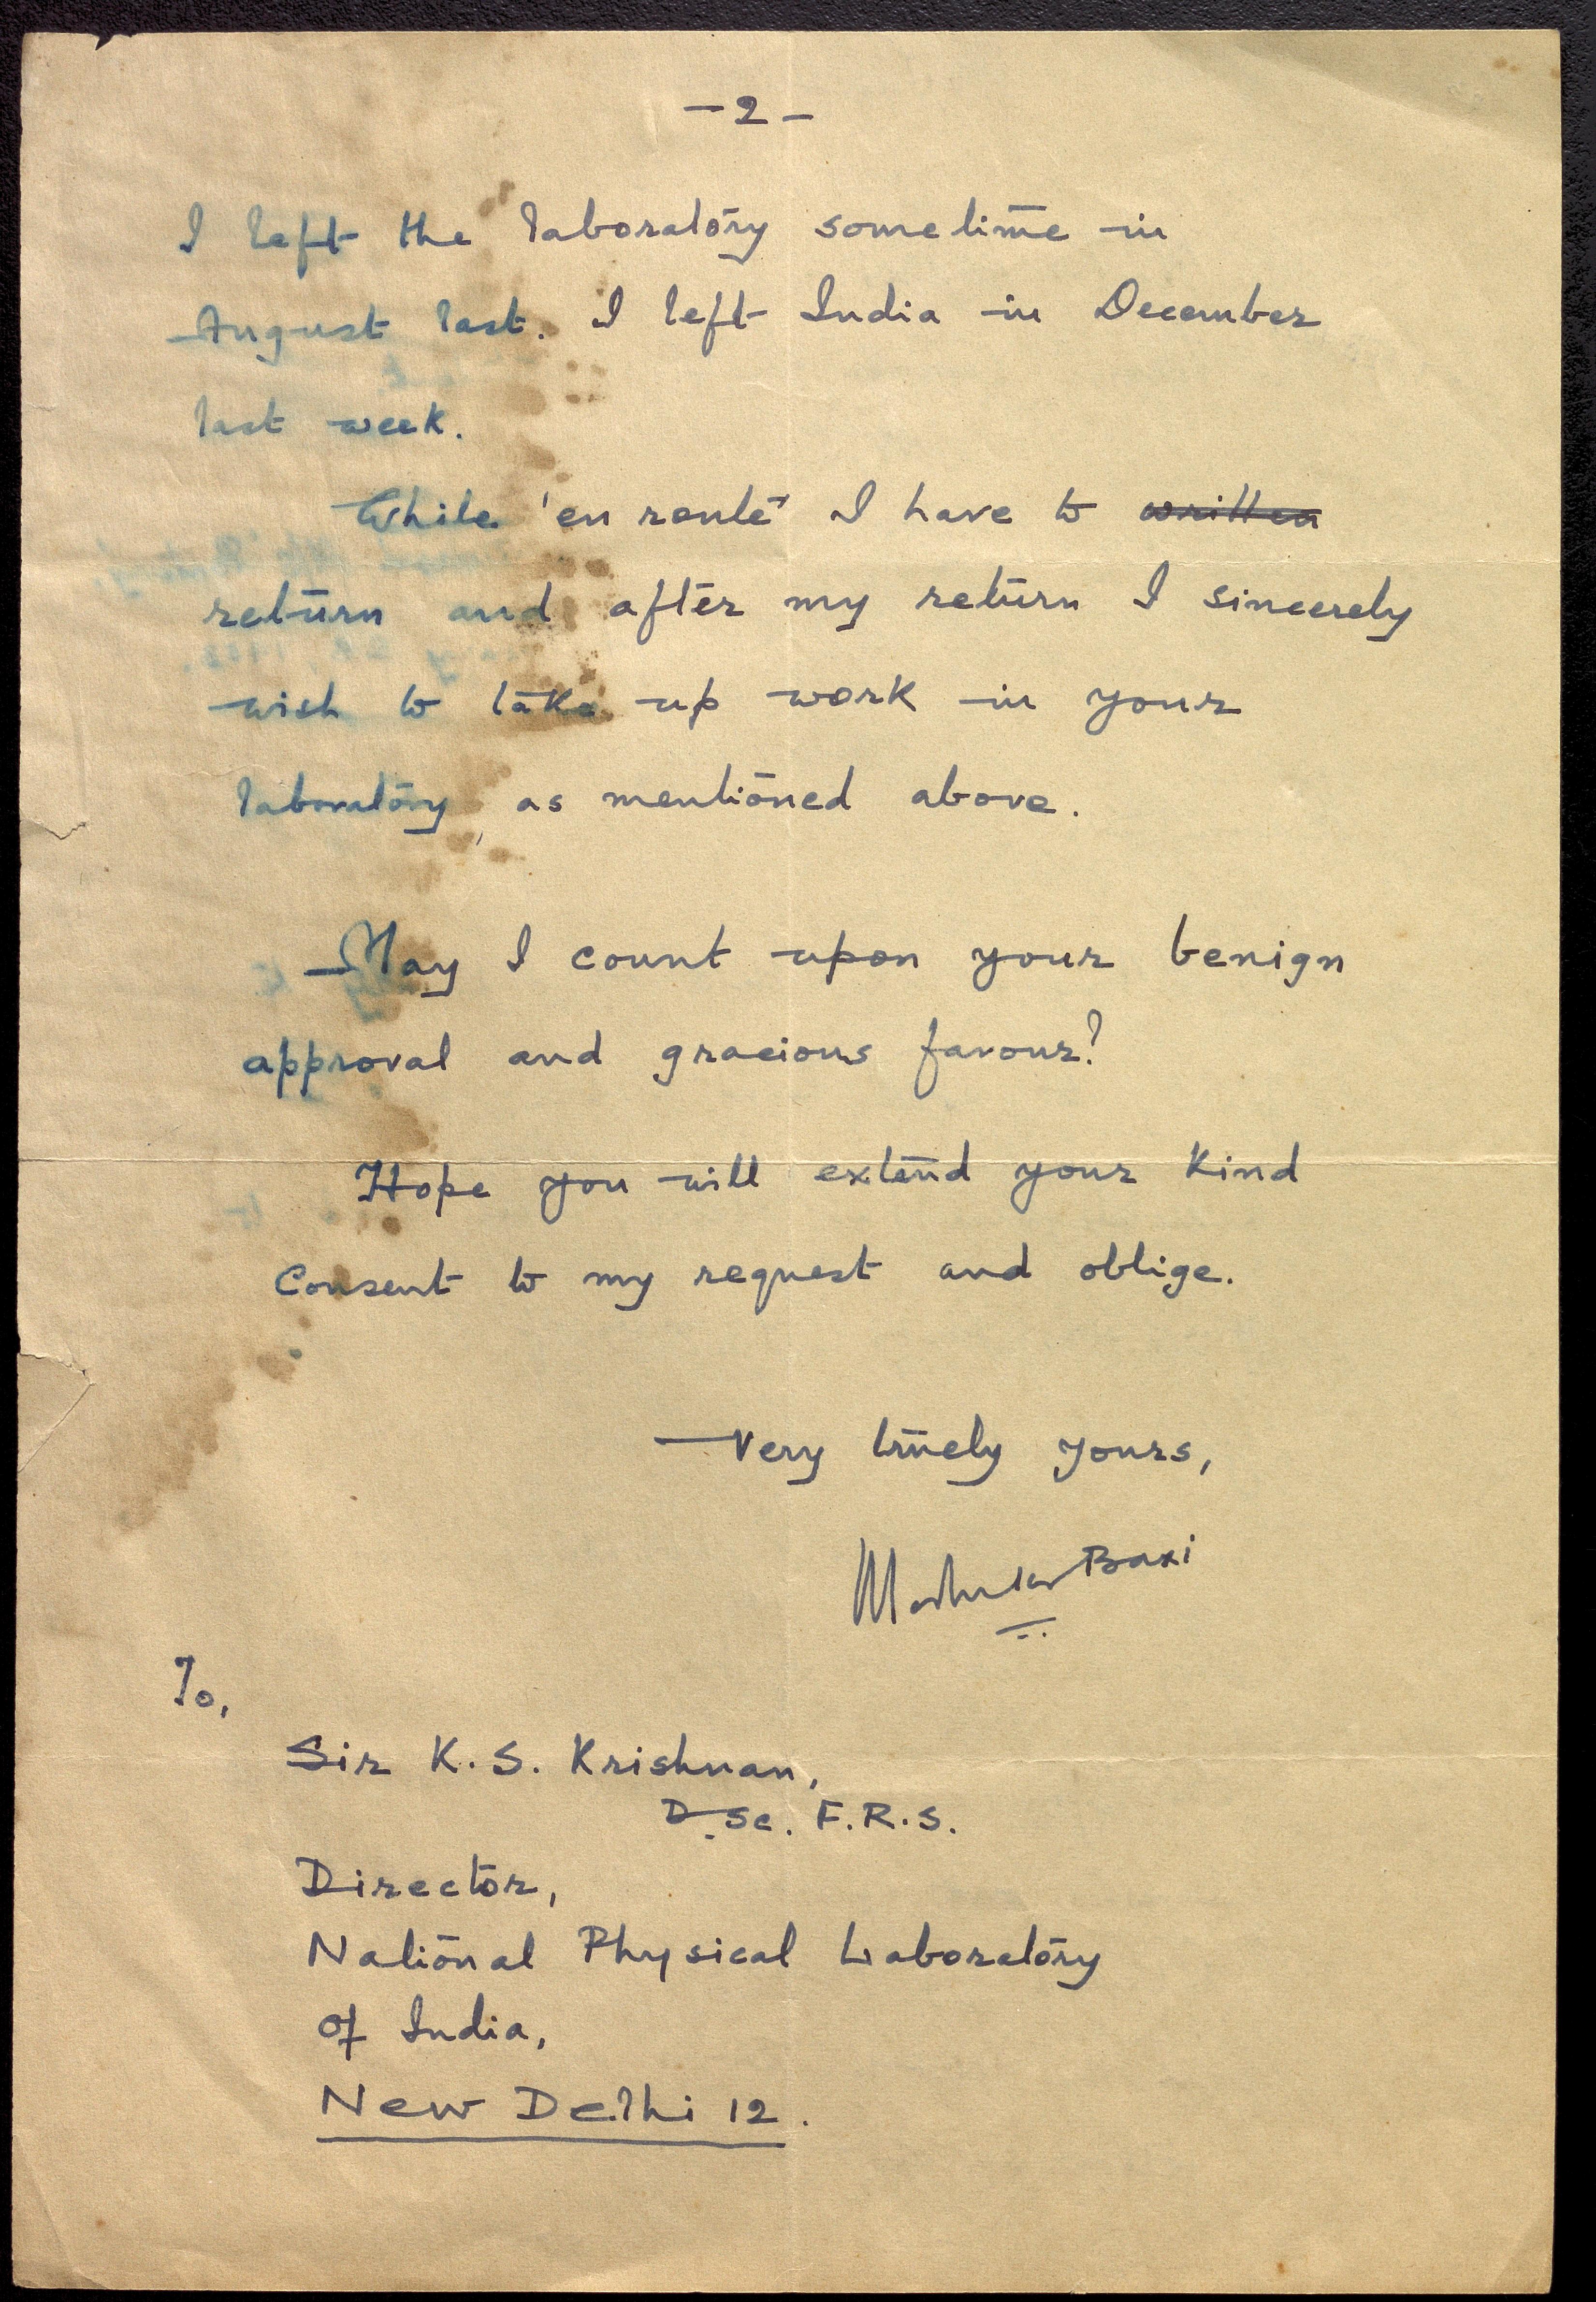 -2-
I left the laboratory sometime in
August last. I left India in December
last week.
While 'en route' I have to written
return and after my return I sincerely
wish to take up work in your
laboratory, as mentioned above.
May I count upon your benign
approval and gracious favour?
Hope you will extend your kind
consent to my request and oblige.
Very truely yours,
Madhukar Baxi
To,
Sir K.S. Krishnan,
D.Sc. F.R.S.
Director,
National Physical Laboratory
of India,
New Delhi 12.